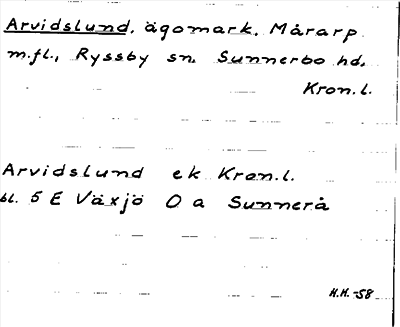 Arvidslund, ägomark, Mårarp
m.fl., Ryssby sn, Sunnerbo hd,
Kron.l.
Arvidslund ek Kron.l.
bl. 5 E Växjö O a Sunnerå
H.H.-58